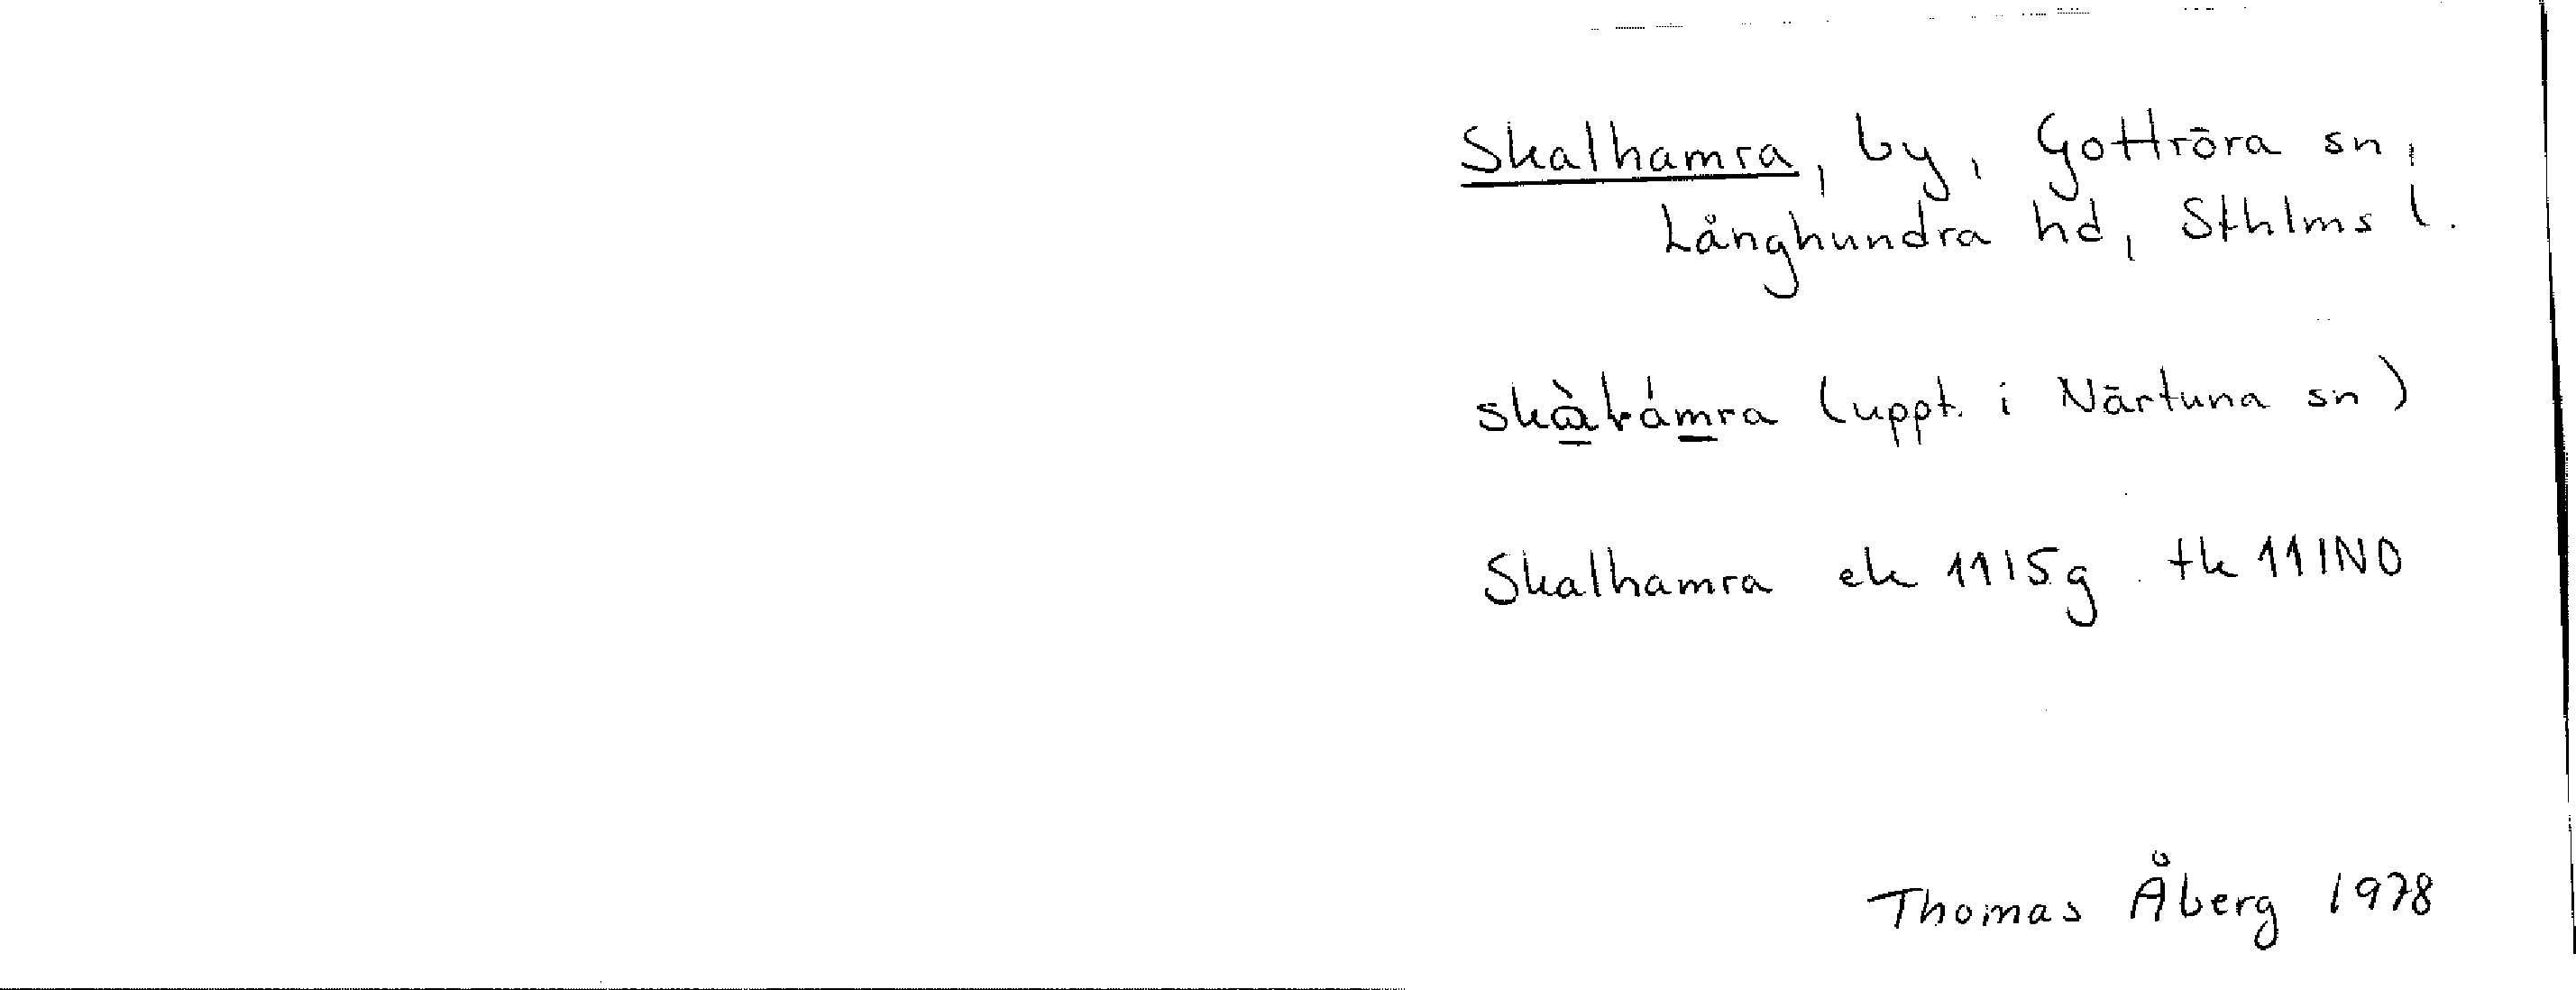 Skalhamra, by, Gottröra sn,
Långhundra hd, Sthlms l.
(uppt. i Närtuna sn)
Skalhamra ek 11I5g tk 11INO
Thomas Åberg 1978